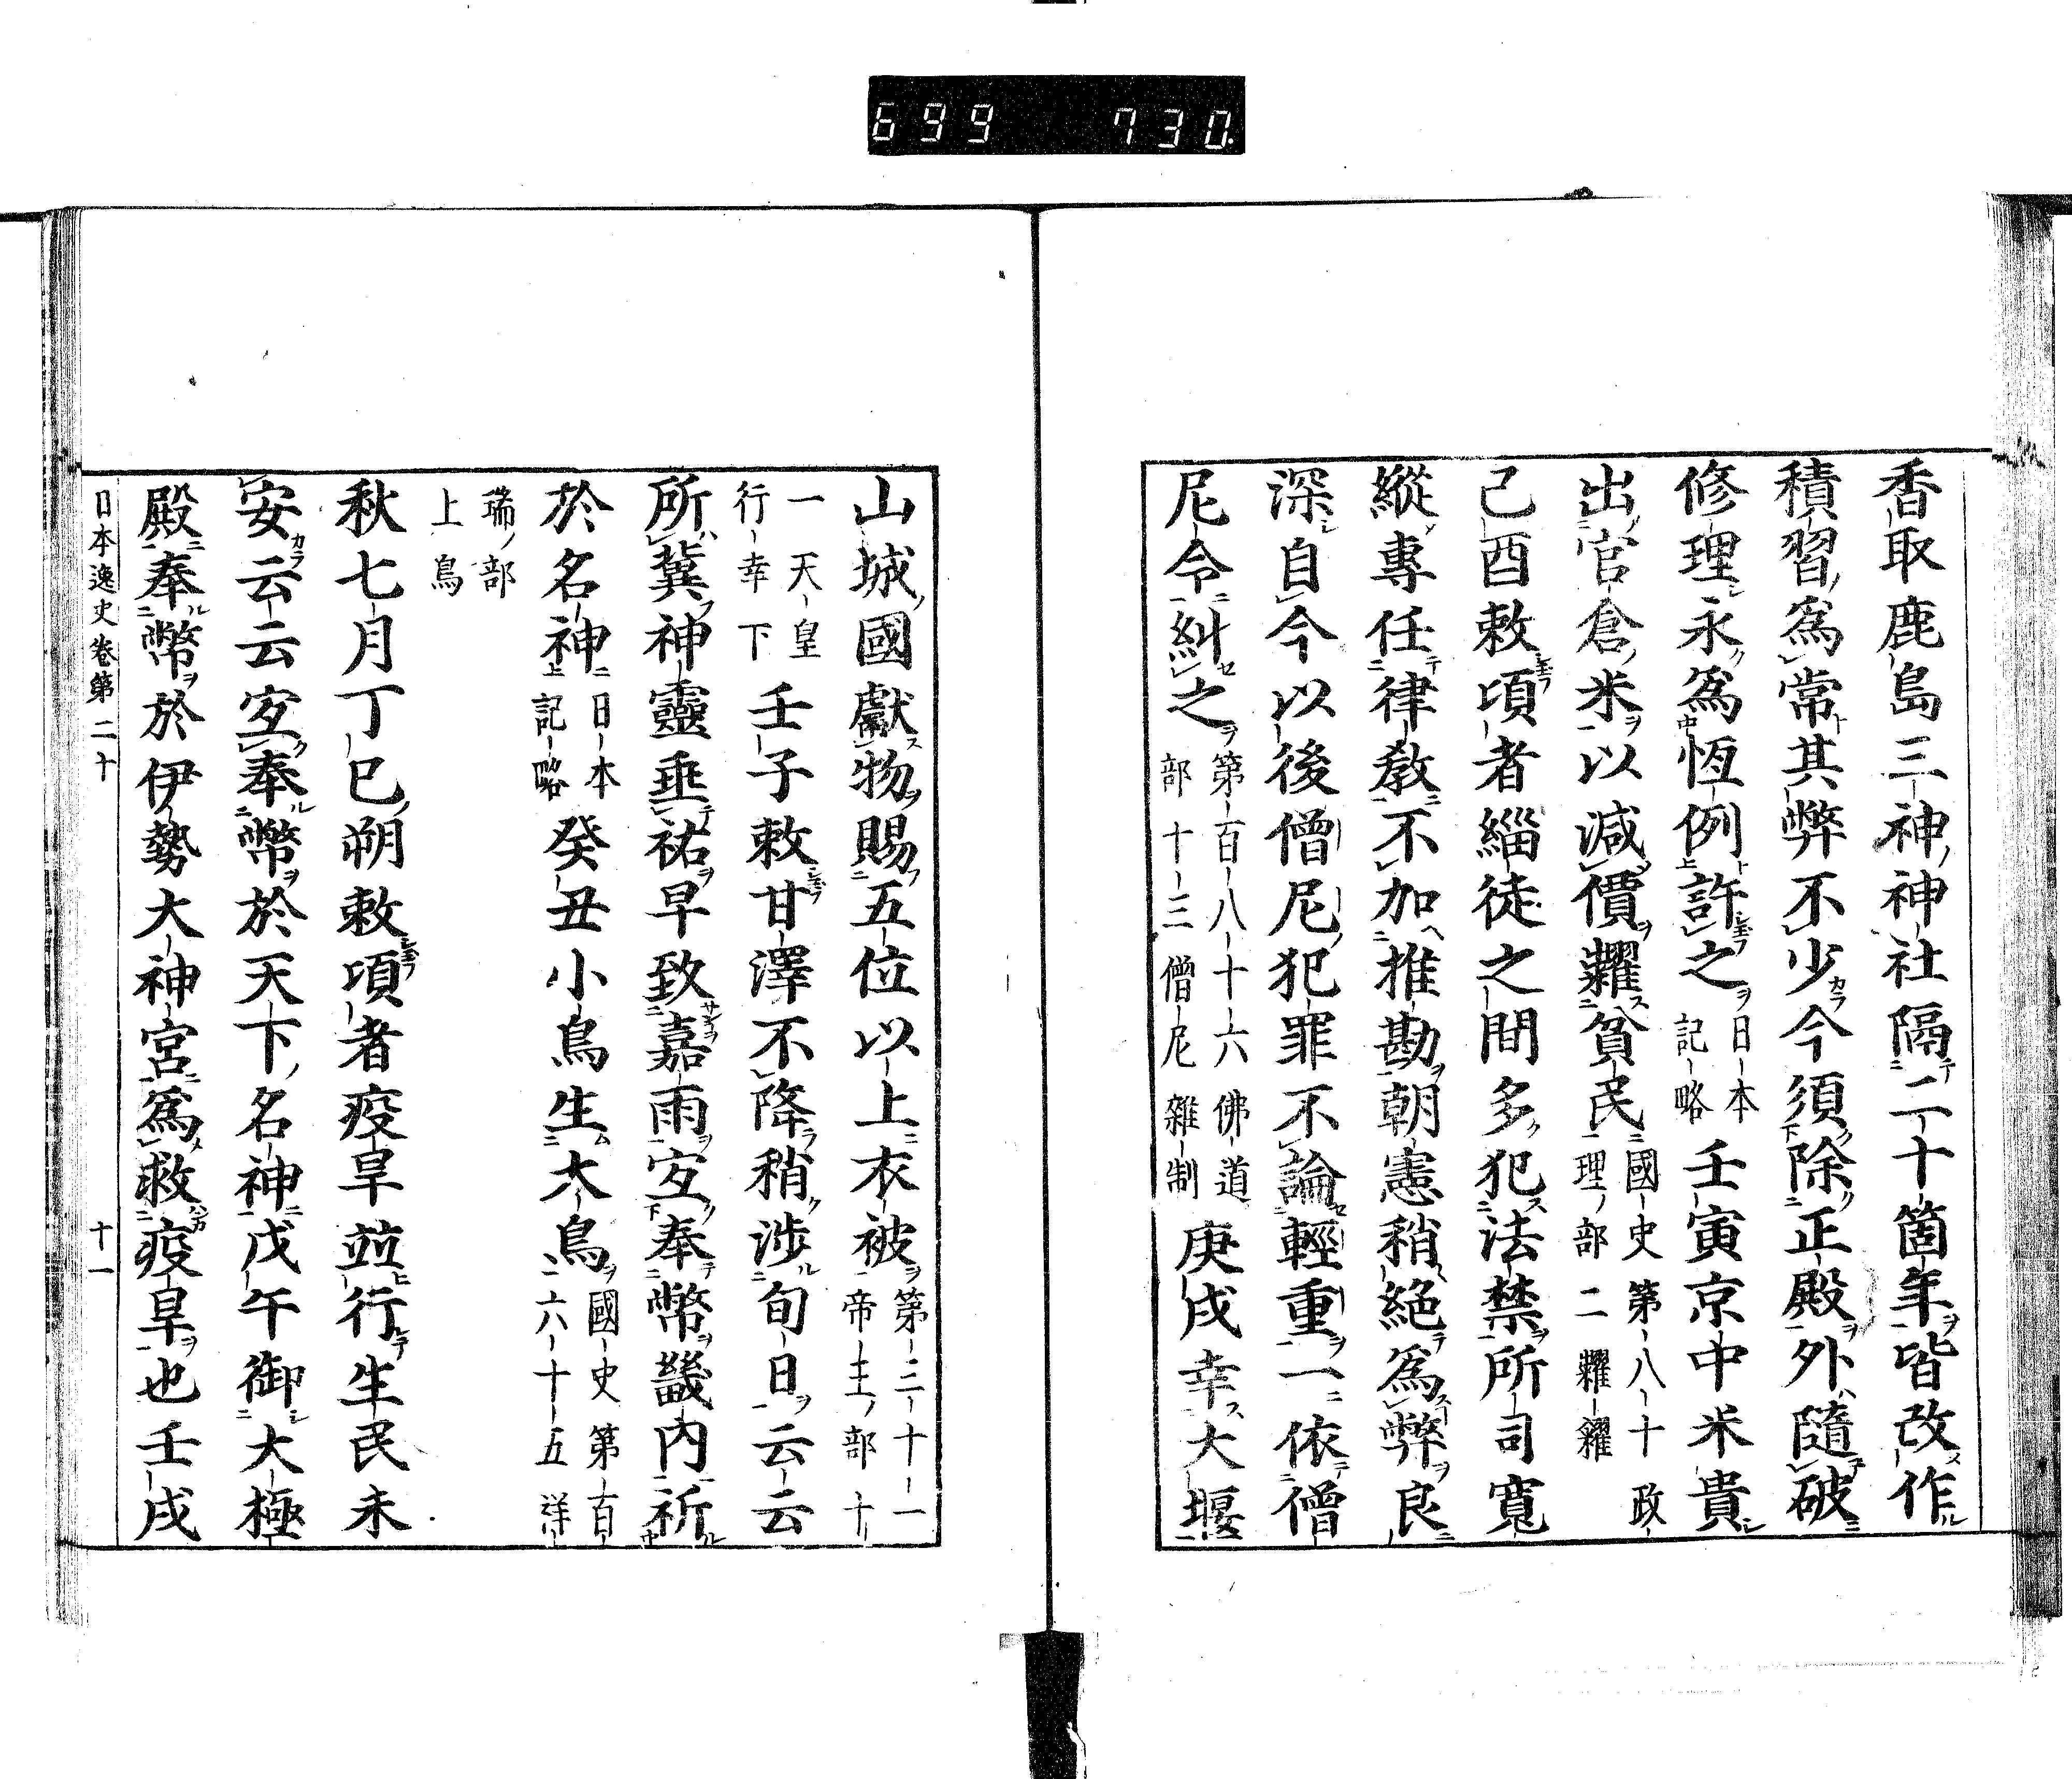 699 730.
香取鹿島三神神社隔二十箇年皆改作
積習爲常其弊不少今須除正殿外隨破
修理永爲恆例許之日本記略壬寅京中米貴
出官倉米以減價糶貧民國史第八十政理部二糶糴
己酉敕頃者緇徒之間多犯法禁所司寬
縱專任律敎不加推勘朝憲稍絕爲弊良
深自今以後僧尼犯罪不論輕重一依僧
尼令糾之第百八十六佛道部十三僧尼雜制庚戌幸大堰
山城國獻物賜五位以上衣被第三十一帝王部十
一天皇行幸下壬子敕甘澤不降稍涉旬日云云
所冀神靈垂祐早致嘉雨宜奉幣畿內祈
於名神日本記略癸丑小鳥生大鳥國史第百六十五祥
瑞部上鳥
秋七月丁巳朔敕頃者疫旱竝行生民未
安云云宜奉幣於天下名神戊午御大極
殿奉幣於伊勢大神宮爲救疫旱也壬戌
日本逸史卷第二十 十一